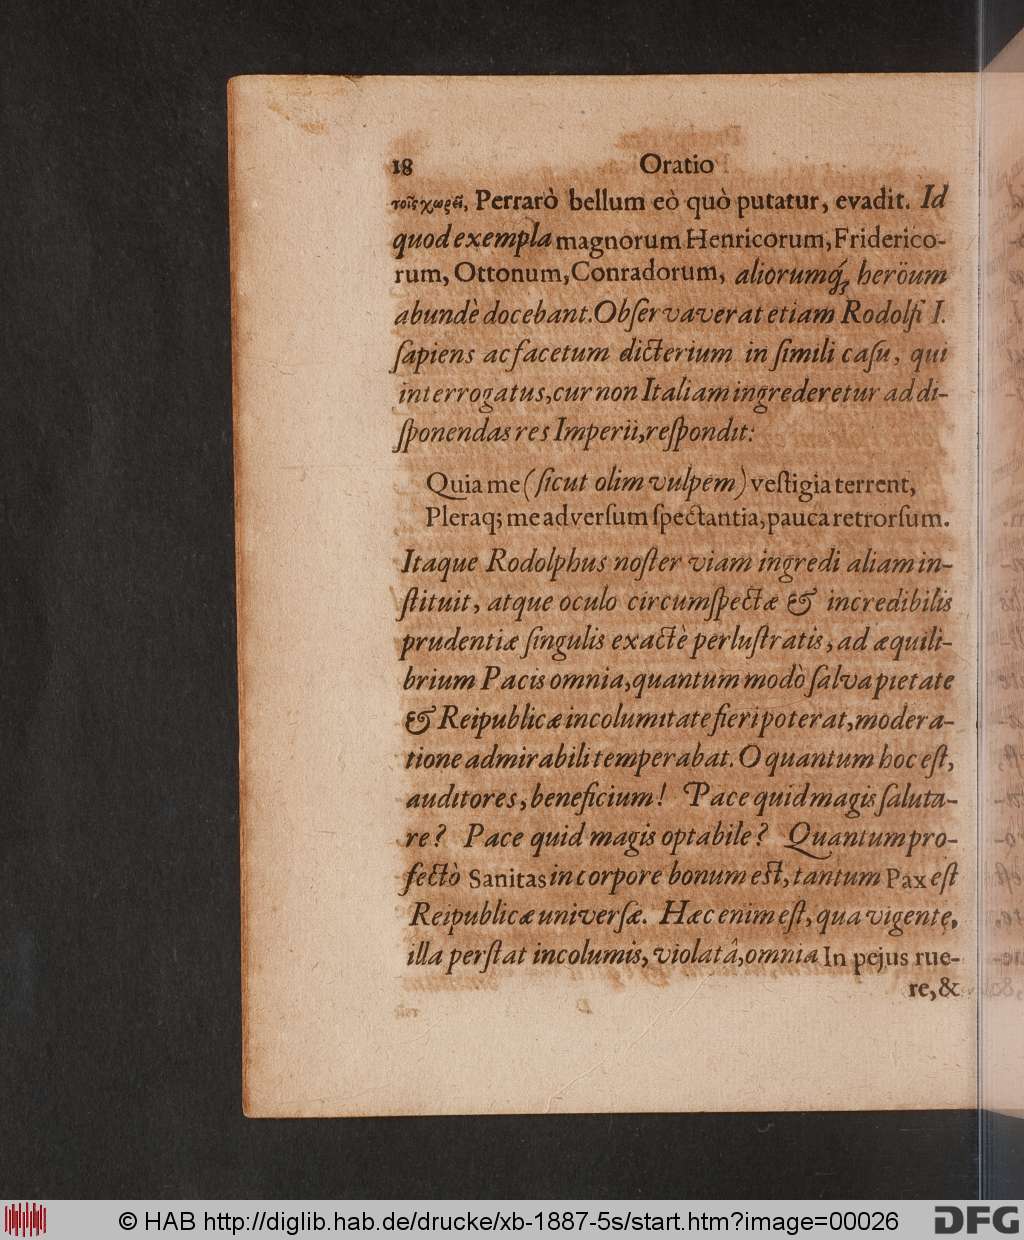 18 Oratio
τοῖς χωρεῖ, Perrarò bellum eò quò putatur, evadit. Id
quod exempla magnorum Henricorum, Friderico-
rum, Ottonum, Conradorum, aliorumq́; heröum
abundè docebant. Obſervaverat etiam Rodolfi I.
ſapiens ac facetum dicterium in ſimili caſu, qui
interrogatus, cur non Italiam ingrederetur ad di-
ſponendas res Imperii, reſpondit:
Quia me (ſicut olim vulpem) veſtigia terrent,
Pleraq; me adverſum ſpectantia, pauca retrorſum.
Itaque Rodolphus noſter viam ingredi aliam in-
ſtituit, atque oculo circumſpectæ & incredibilis
prudentiæ ſingulis exactè perluſtratis, ad æquili-
brium Pacis omnia, quantum modò ſalva pietate
& Reipublicæ incolumitate fieri poterat, modera-
tione admirabili temperabat. O quantum hoc eſt,
auditores, beneficium! Pace quid magis ſaluta-
re? Pace quid magis optabile? Quantum pro-
fectò Sanitas in corpore bonum eſt, tantum Pax eſt
Reipublicæ univerſæ. Hæc enim eſt, qua vigente,
illa perſtat incolumis, violatâ, omnia In pejus rue-
re, &
© HAB http://diglib.hab.de/drucke/xb-1887-5s/start.htm?image=00026
DFG